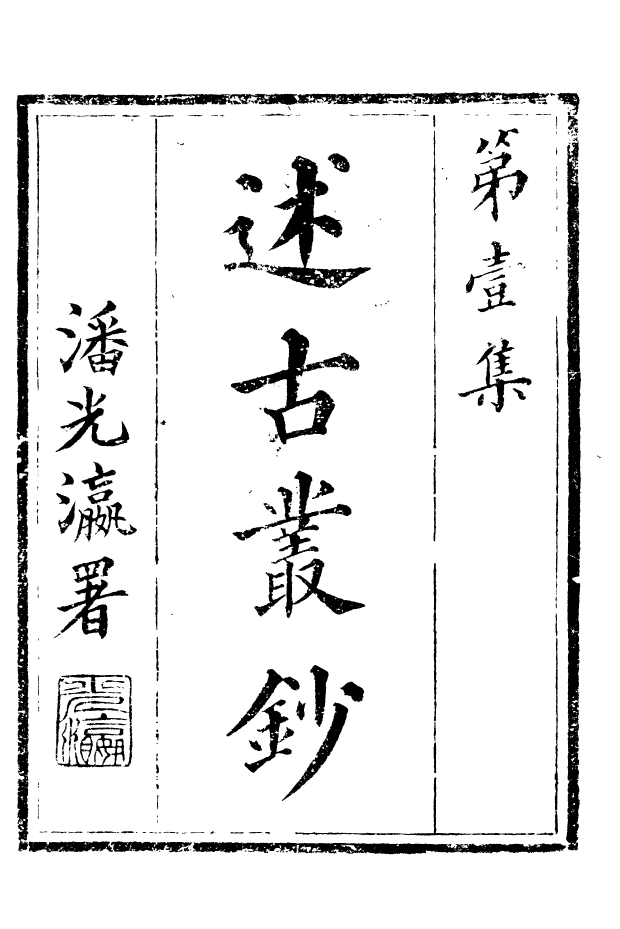 第壹集
述古叢鈔
潘光瀛署
光瀛